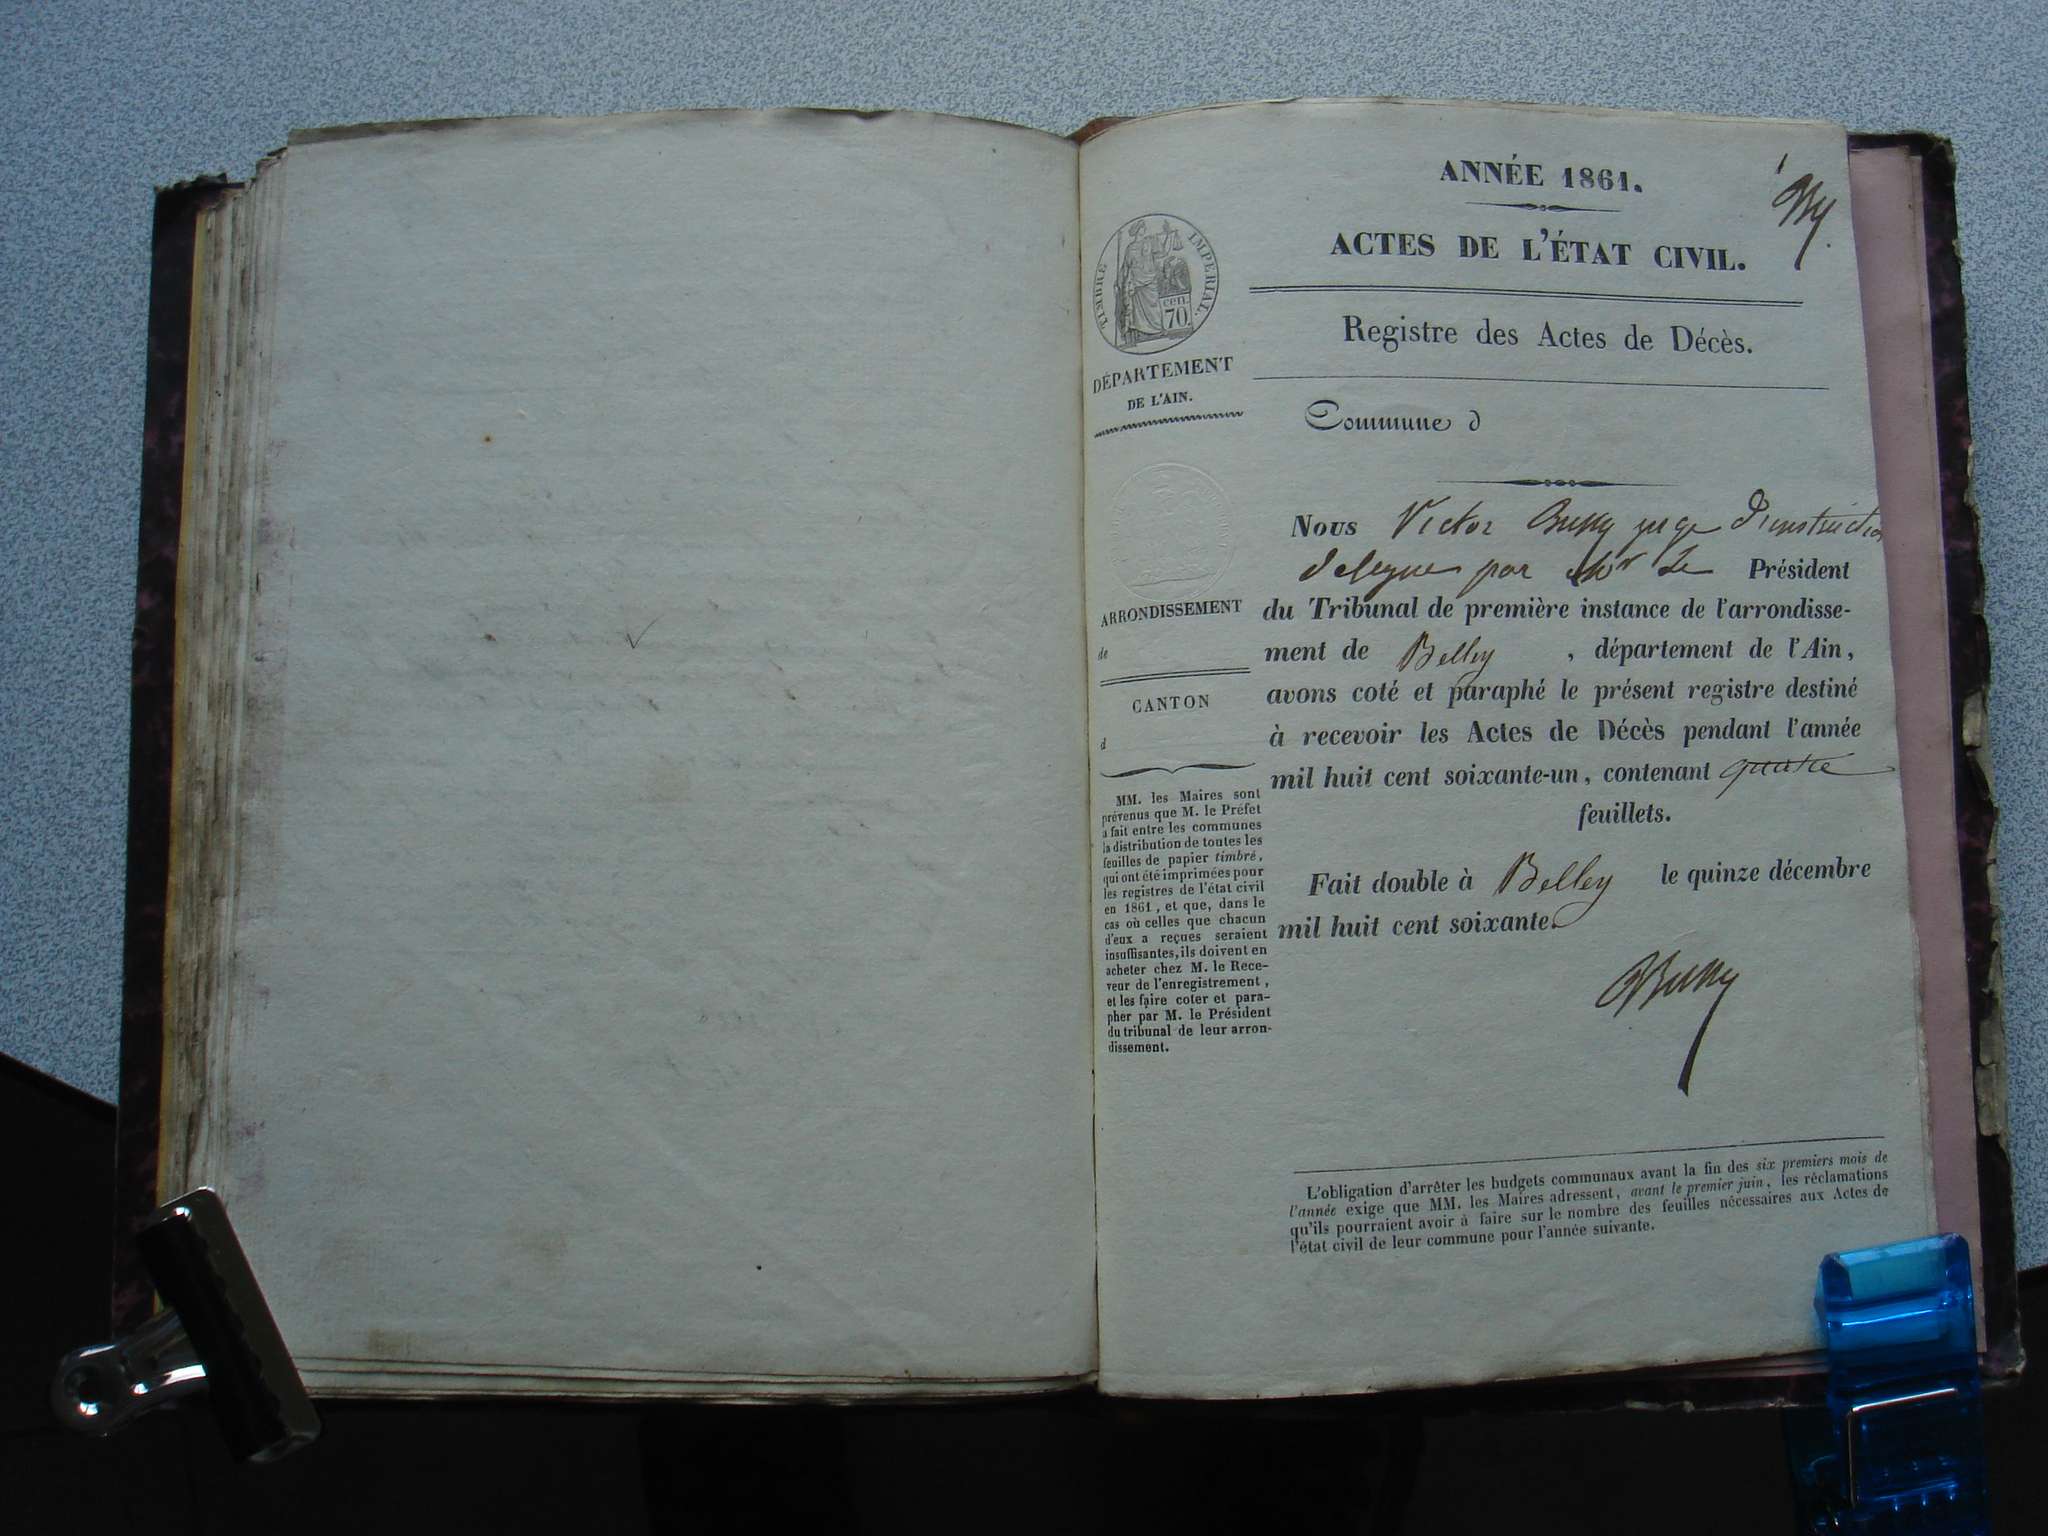 ANNÉE 1861.
ACTES DE L'ÉTAT CIVIL.
Registre des Actes de Décès.
Commune d
TIMBRE IMPERIAL.
cen.
70
DÉPARTEMENT
DE L'AIN.
ARRONDISSEMENT
de
CANTON
d
MM. les Maires sont
prévenus que M. le Préfet
a fait entre les communes
la distribution de toutes les
feuilles de papier timbré,
qui ont été imprimées pour
les registres de l'état civil
en 1861, et que, dans le
cas où celles que chacun
d'eux a reçues seraient
insuffisantes, ils doivent en
acheter chez M. le Rece-
veur de l'enregistrement,
et les faire coter et para-
pher par M. le Président
du tribunal de leur arron-
dissement.
Nous Victor Bussy juge d'instruction
délégué par Mr Le Président
du Tribunal de première instance de l'arrondisse-
ment de Belley, département de l'Ain,
avons coté et paraphé le présent registre destiné
à recevoir les Actes de Décès pendant l'année
mil huit cent soixante-un, contenant quatre
feuillets.
Fait double à Belley le quinze décembre
mil huit cent soixante.
Bussy
L'obligation d'arrêter les budgets communaux avant la fin des six premiers mois de
l'année exige que MM. les Maires adressent, avant le premier juin, les réclamations
qu'ils pourraient avoir à faire sur le nombre des feuilles nécessaires aux Actes de
l'état civil de leur commune pour l'année suivante.